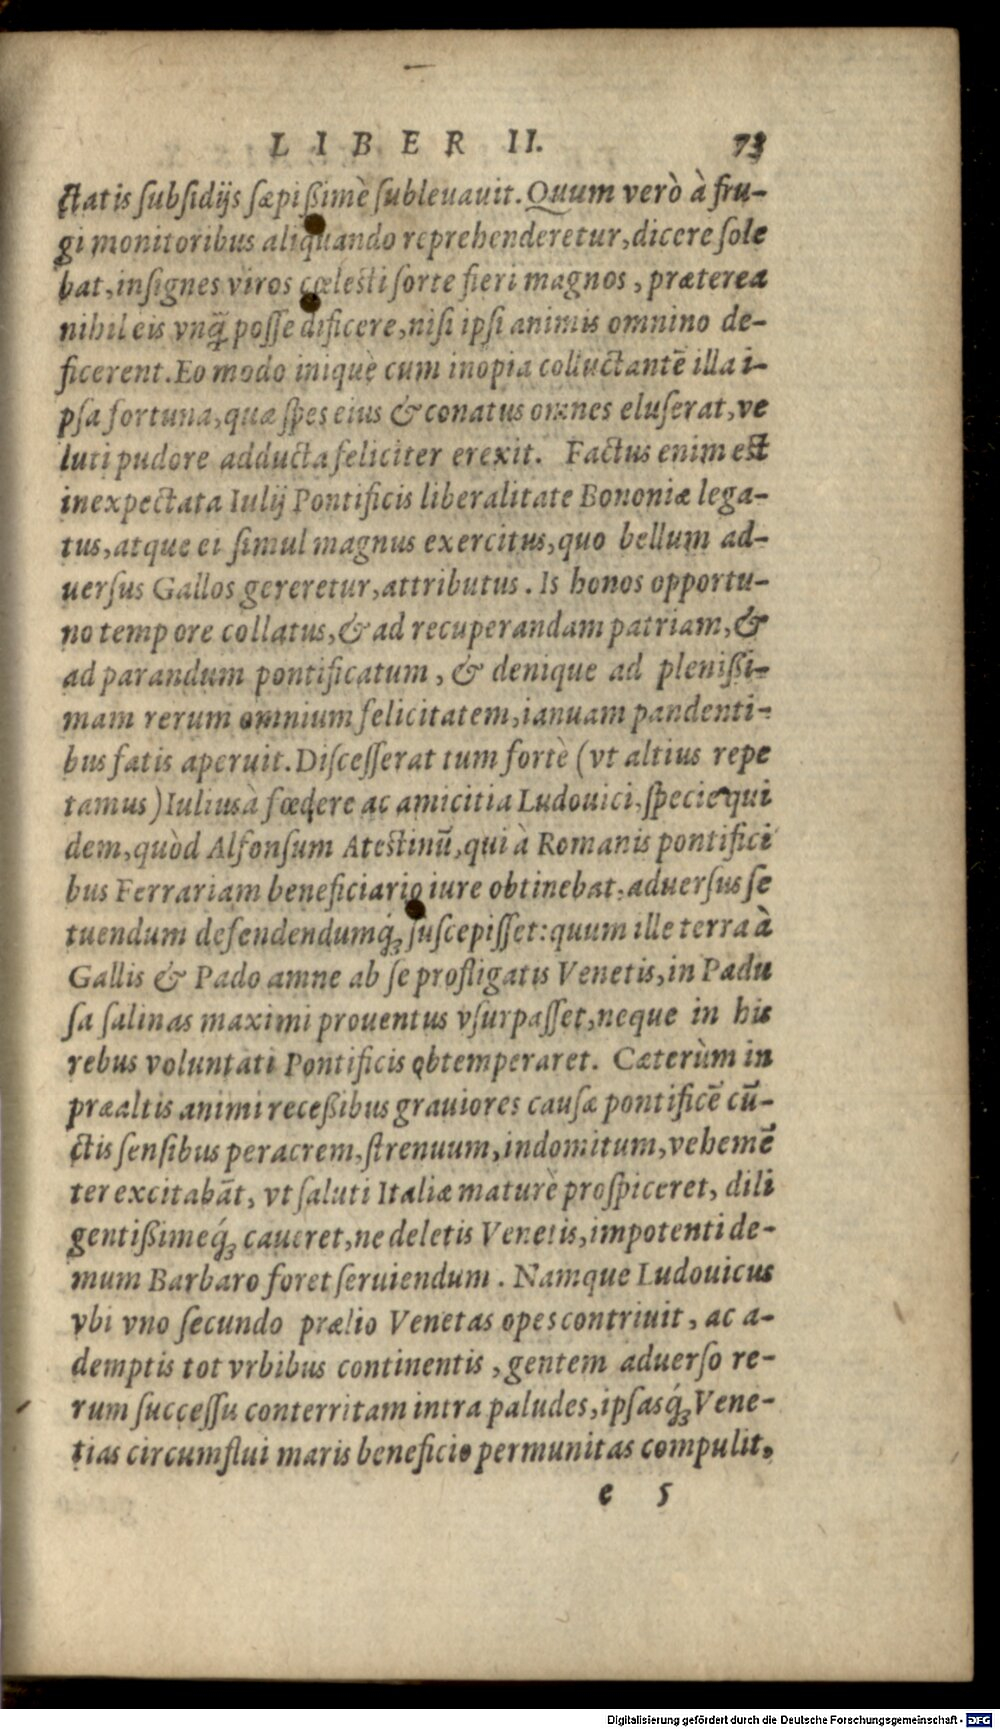 LIBER II. 73
ctatis subsidijs sæpißimè subleuauit. Quum verò à fru-
gi monitoribus aliquando reprehenderetur, dicere sole
bat, insignes viros cœlesti sorte fieri magnos, præterea
nihil eis vnq̃ posse dificere, nisi ipsi animis omnino de-
ficerent. Eo modo iniquè cum inopia colluctantē illa i-
psa fortuna, quæ spes eius & conatus omnes eluserat, ve
luti pudore adducta feliciter erexit. Factus enim est
inexpectata Iulij Pontificis liberalitate Bononiæ lega-
tus, atque ei simul magnus exercitus, quo bellum ad-
uersus Gallos gereretur, attributus. Is honos opportu-
no tempore collatus, & ad recuperandam patriam, &
ad parandum pontificatum, & denique ad plenißi-
mam rerum omnium felicitatem, ianuam pandenti-
bus fatis aperuit. Discesserat tum fortè (vt altius repe
tamus) Iulius à fœdere ac amicitia Ludouici, specie qui
dem, quòd Alfonsum Atestinū, qui à Romanis pontifici
bus Ferrariam beneficiario iure obtinebat, aduersus se
tuendum defendendumq́; suscepisset: quum ille terra à
Gallis & Pado amne ab se profligatis Venetis, in Padu
sa salinas maximi prouentus vsurpasset, neque in his
rebus voluntati Pontificis obtemperaret. Cæterùm in
præaltis animi receßibus grauiores causæ pontificē cū-
ctis sensibus peracrem, strenuum, indomitum, vehemē
ter excitabāt, vt saluti Italiæ maturè prospiceret, dili
gentißimeq́; caueret, ne deletis Venetis, impotenti de-
mum Barbaro foret seruiendum. Namque Ludouicus
vbi vno secundo prælio Venetas opes contriuit, ac a-
demptis tot vrbibus continentis, gentem aduerso re-
rum successu conterritam intra paludes, ipsasq́; Vene-
tias circumflui maris beneficio permunitas compulit,
e 5
Digitalisierung gefördert durch die Deutsche Forschungsgemeinschaft - DFG